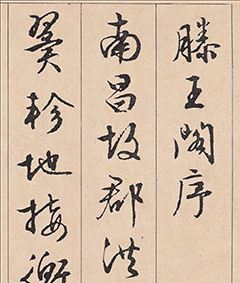 滕王閣序
南昌故郡洪
翼軫地接衡